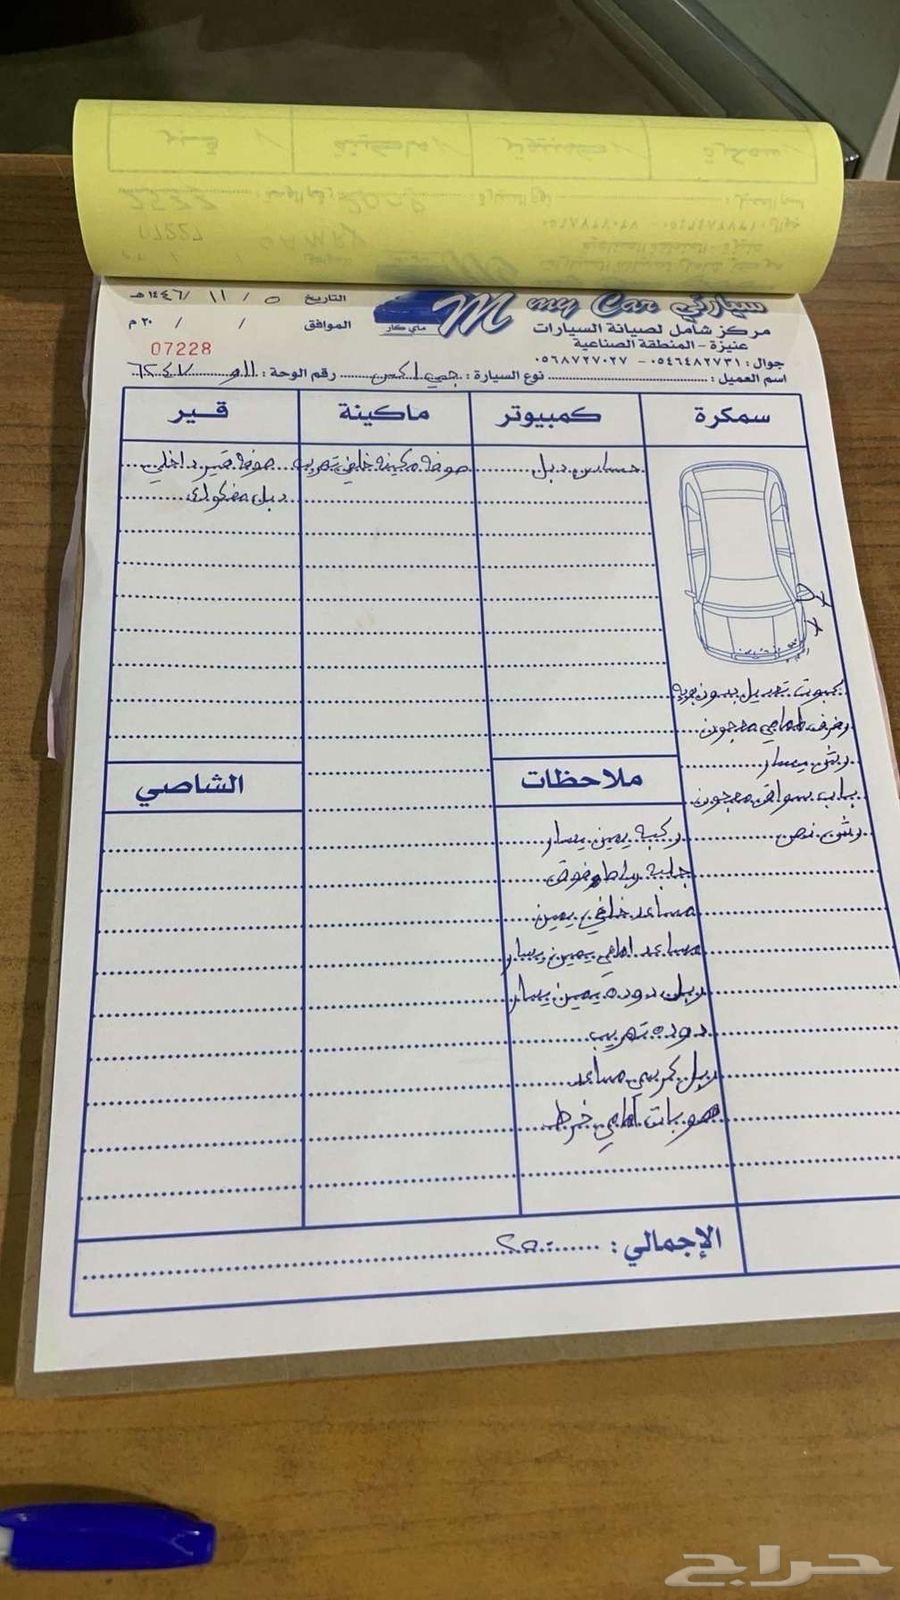 سيارتي my Car
M
ماي كار
مركز شامل لصيانة السيارات
عنيزة - المنطقة الصناعية
جوال : ٠٥٤٦٤٨٢٧٣١ - ٠٥٦٨٧٢٧٠٢٧
التاريخ ٥ / ١١ / ١٤٤٦هـ
الموافق / / ٢٠ م
07228
اسم العميل : نوع السيارة : جي اكس رقم الوحة :
سمكرة
كمبيوتر
ماكينة
قير
حساس دبل
صوفة مكينة خلفي تهريب
صوفة قير داخلي
دبل مفكوك
كبوت تعديل بدون بويه
رفرف امامي معجون
رش يسار
باب سواق معجون
رش نص
ملاحظات
ركبة يمين يسار
جلبة فوق
مساعد خلفي يمين
مساعد امامي يمين يسار
ربل دودة يمين يسار
دودة تهريب
ربل كرسي مساعد
هوبات امامي خرط
الشاصي
الإجمالي :
07227
حراج